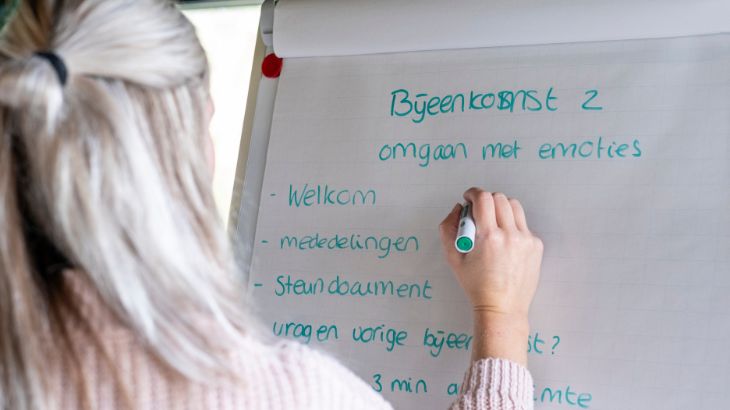 Bijeenkomst 2
omgaan met emoties
- Welkom
- mededelingen
- Steundocument
vragen vorige
3 min